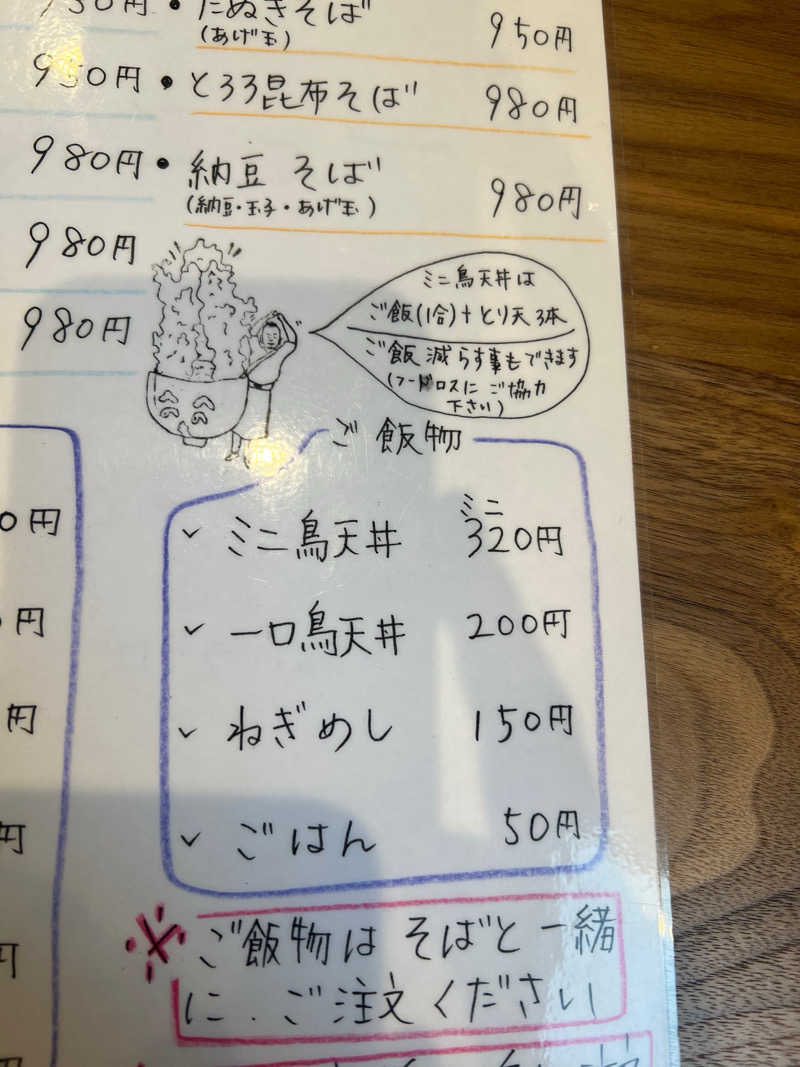 たぬきそば 950円
(あげ玉)
950円
・とろろ昆布そば 980円
980円
・納豆 そば 980円
(納豆・玉子・あげ玉)
980円
980円
ミニ鳥天丼は
ご飯(1合)+とり天3本
ご飯減らす事もできます
(フードロスに ご協力
下さい)
ご飯物
ミニ
✓ ミニ鳥天丼 320円
✓ 一口鳥天丼 200円
✓ ねぎめし 150円
✓ ごはん 50円
0円
円
円
円
円
※ご飯物は そばと一緒
に.ご注文ください